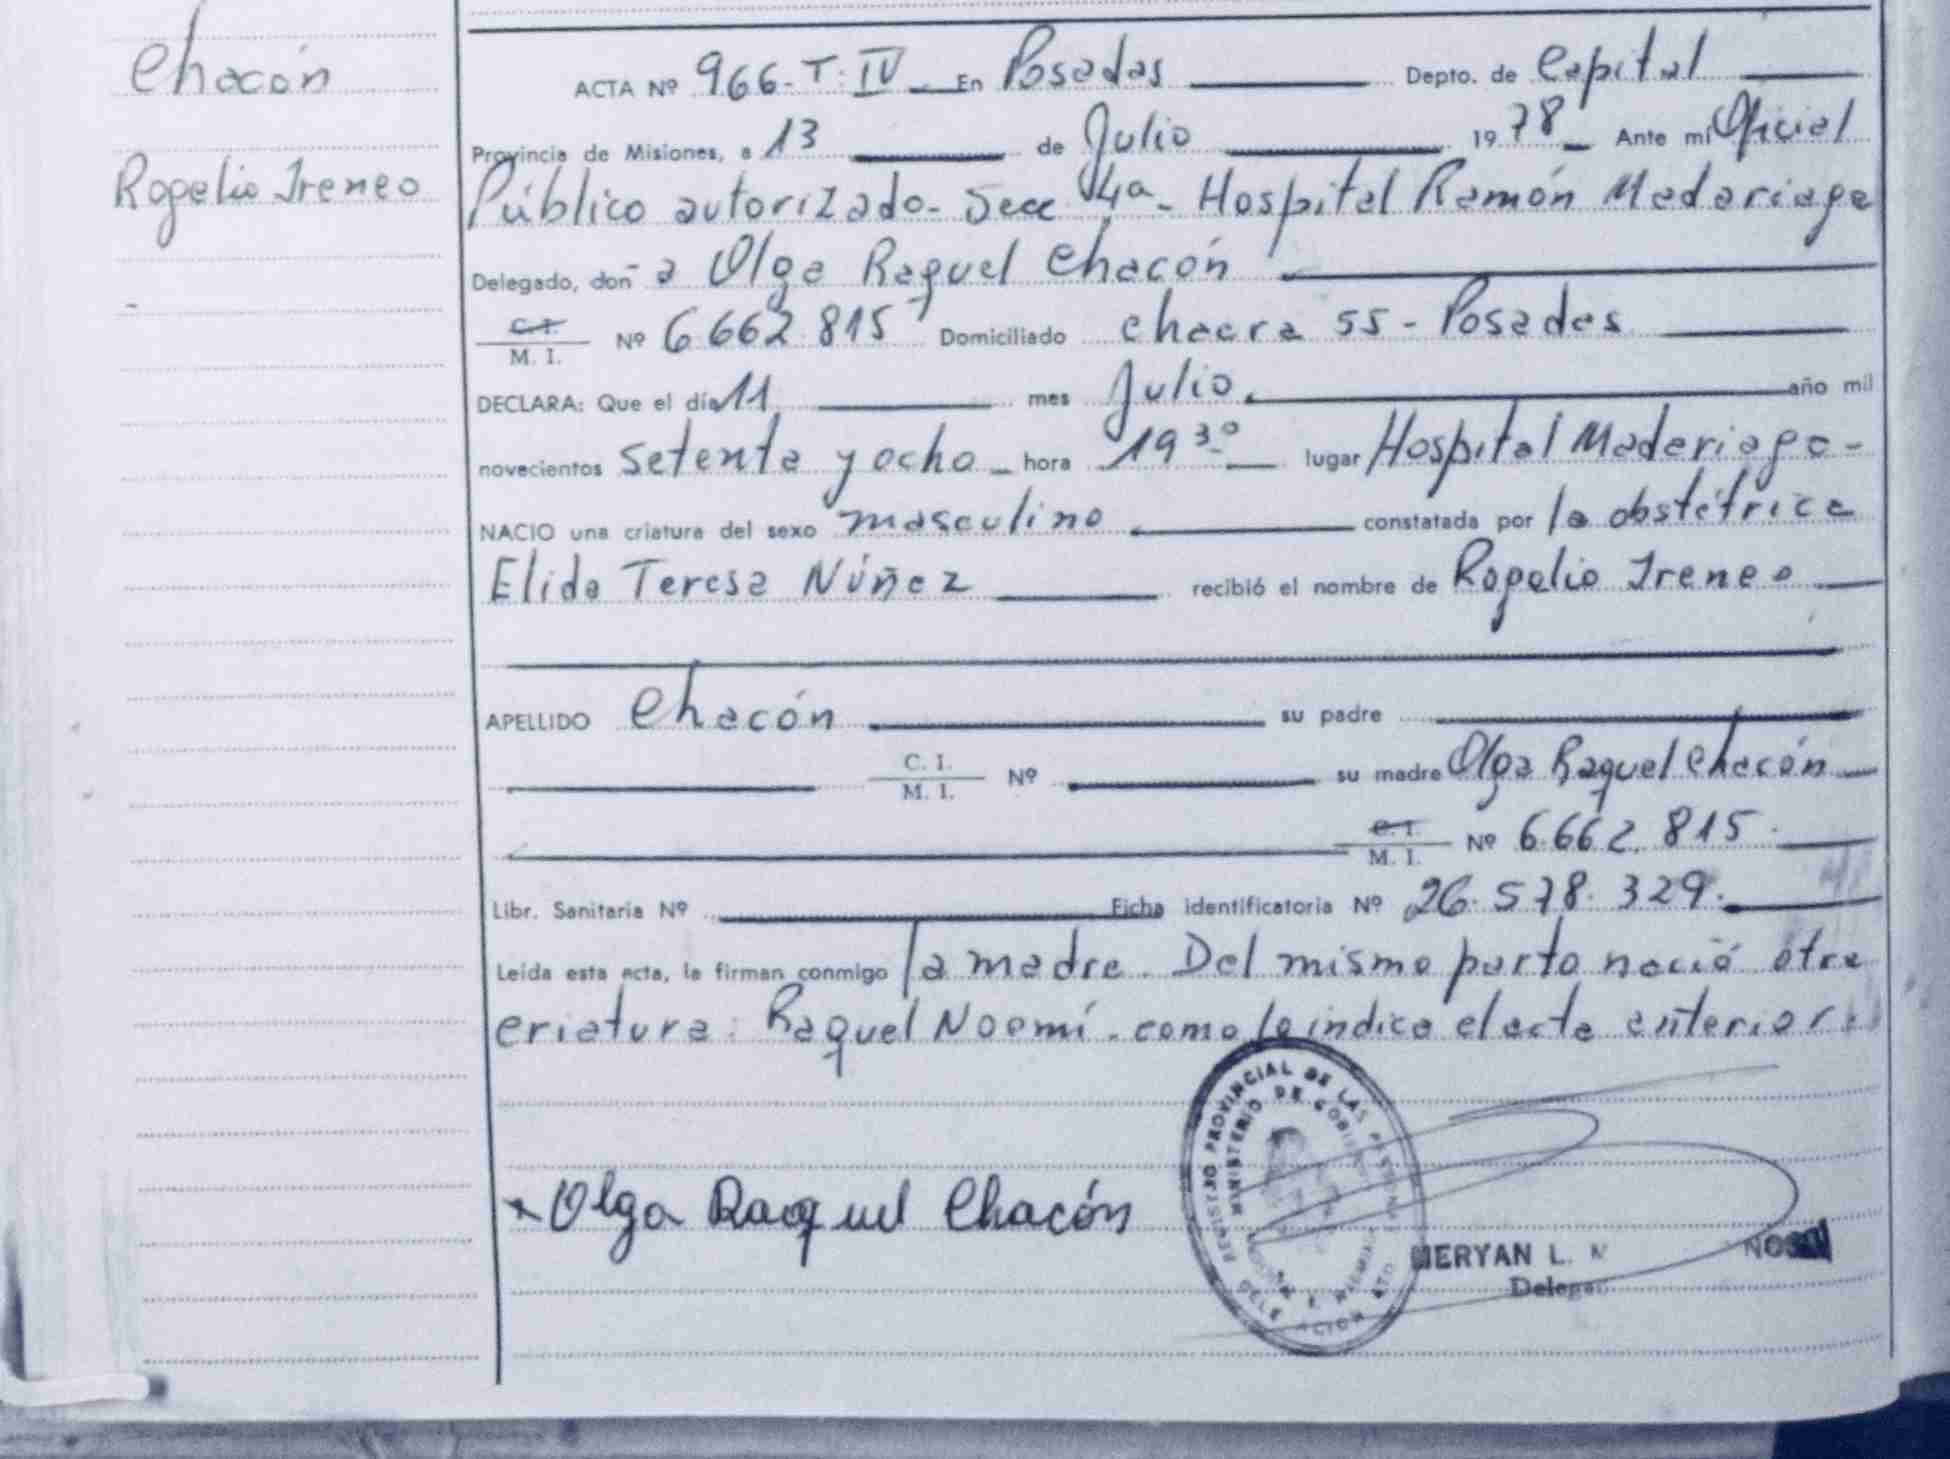 Chacón
Rogelio Ireneo
ACTA Nº 966-T:IV - En Posadas Depto. de Capital
Provincia de Misiones, a 13 de Julio 1978 Ante mí Oficial
Público autorizado- Secc 4a- Hospital Ramón Madariaga
Delegado, don-a Olga Raquel Chacón
C.I.
M. I. Nº 6.662.815 Domiciliado chacra 55 - Posadas
DECLARA: Que el día 11 mes Julio. año mil
novecientos setenta y ocho - hora 19 30 lugar Hospital Madariaga -
NACIO una criatura del sexo masculino constatada por la obstétrica
Elida Teresa Núñez recibió el nombre de Rogelio Ireneo
APELLIDO Chacón su padre
C. I.
M. I. Nº su madre Olga Raquel Chacón
C.I.
M. I. Nº 6.662.815.
Libr. Sanitaria Nº Ficha identificatoria Nº 26.578.329.
Leída esta acta, la firman conmigo la madre. Del mismo parto nació otra
criatura: Raquel Noemí - como lo indica el acta anterior.
x Olga Raquel Chacón
REGISTRO PROVINCIAL DE LAS PERSONAS
MINISTERIO DE GOBIERNO
MERYAN L.